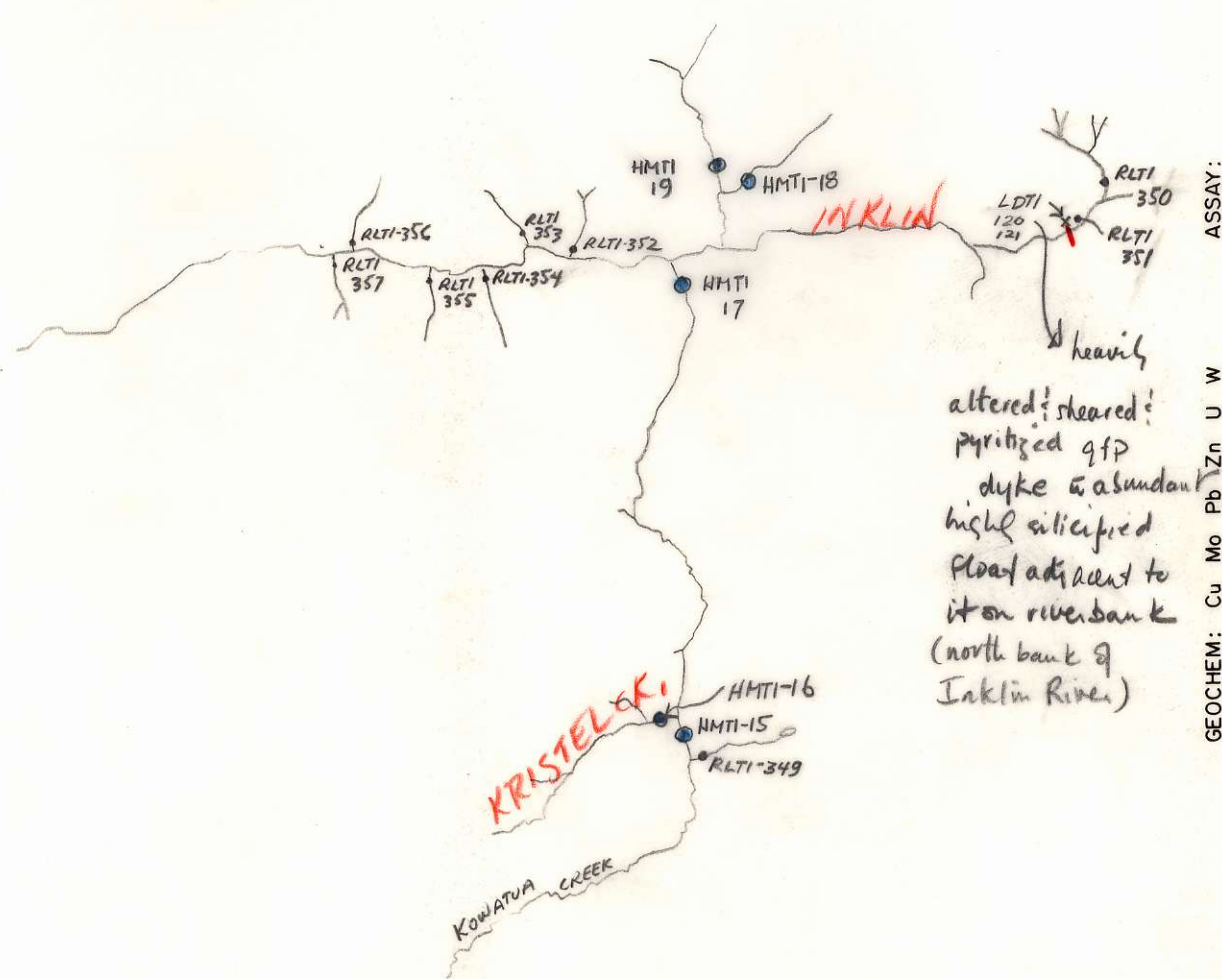 HMT1
19
HMT1-18
INKLIN
RLT1
350
LDT1
120
121
RLT1
351
RLT1-356
RLT1
357
RLT1
353
RLT1-352
RLT1
355
RLT1-354
HMT1
17
heavily
altered & sheared &
pyritized qfp
dyke c̄ abundant
highly silicified
float adjacent to
it on riverbank
(north bank of
Inklin River)
KRISTEL CK.
HMT1-16
HMT1-15
RLT1-349
KOWATUA CREEK
GEOCHEM: Cu Mo Pb Zn U W ASSAY: